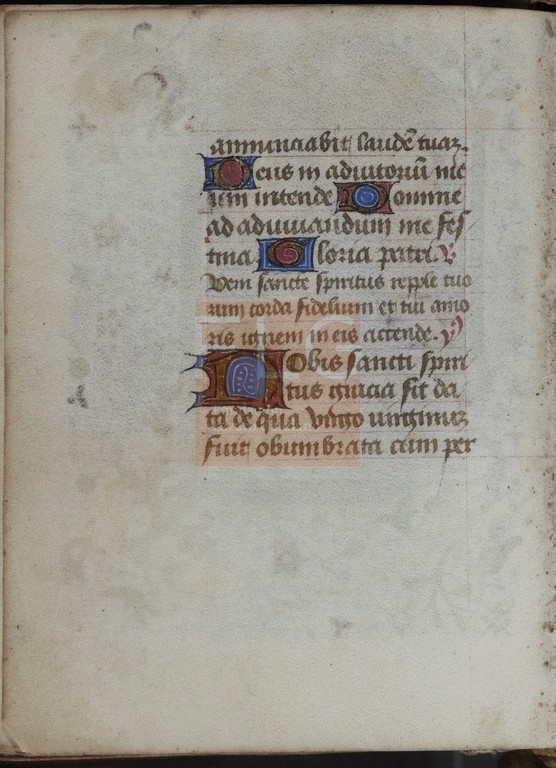 annunciabit laudē tuaz.
Deus in adiutoriū me
um intende Domine
ad adiuuandum me fes
tina Gloria patri. V
Veni sancte spiritus reple tuo
rum corda fidelium et tui amo
ris ignem in eis accende. V
Nobis sancti spiri
tus gracia sit da
ta de qua virgo virginuz
fuit obumbrata cum per